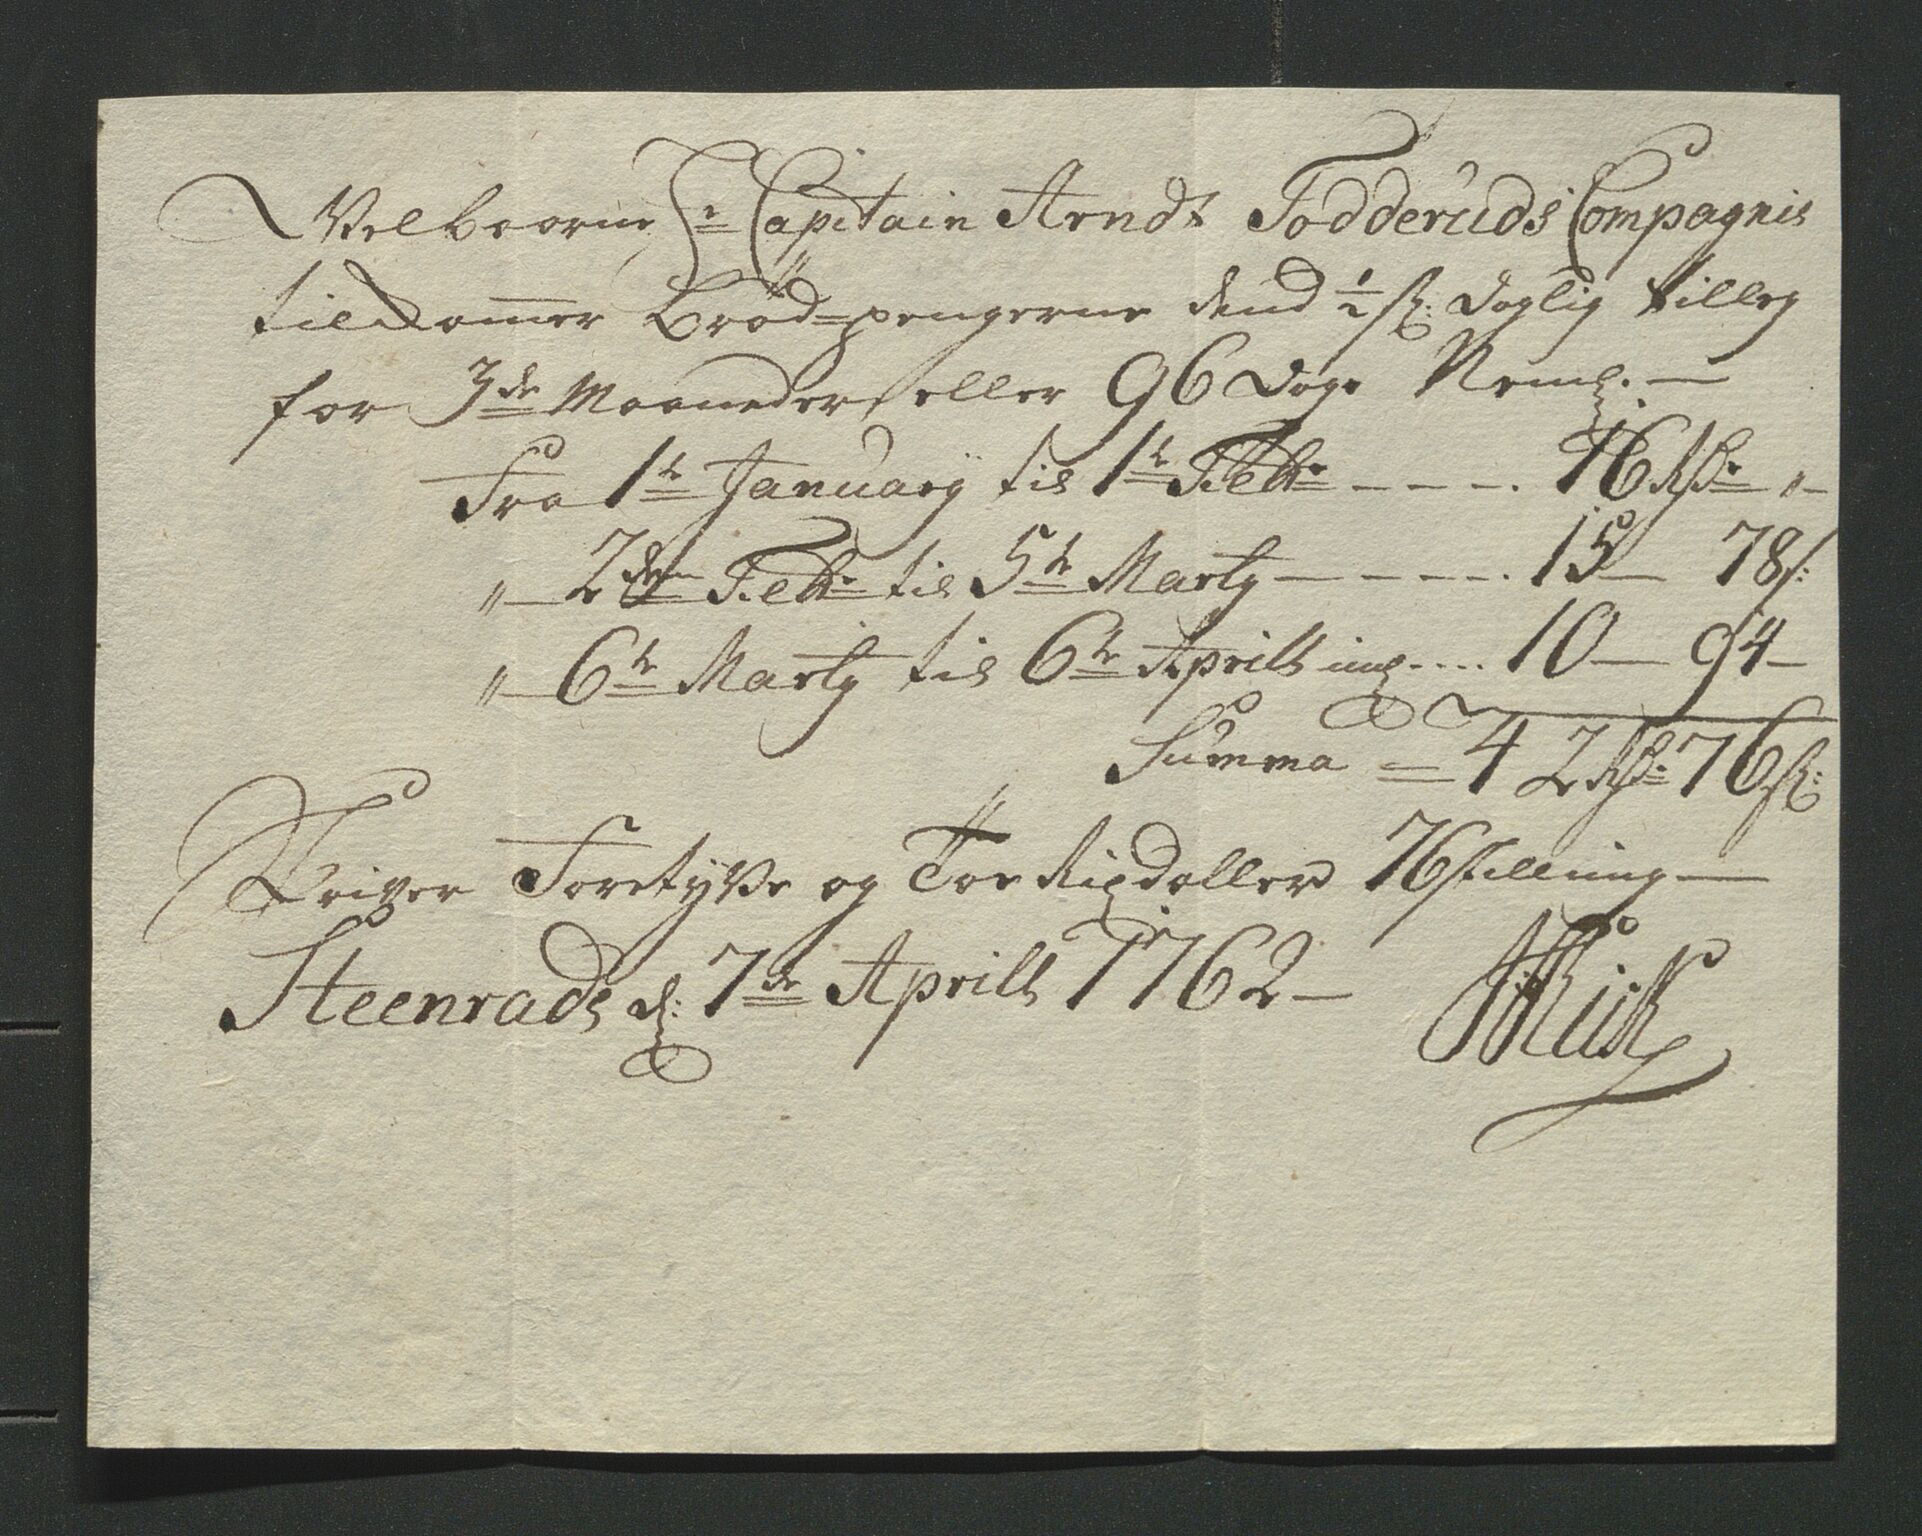 Velbaarne Hr Capitain Arndt Todderuds Compagnie
tilkommer Brød=pengerne dend 1/2 s: daglig tilleg
for 3de Maaneder eller 96 Dage Neml. —
Fra 1te January til 1te Febr. - - - . 16 Rdr „ —
„ — 2den Febr. til 5te Marty - - - - . 15 — 78 s:
„ — 6te Marty til 6te Aprill incl. . . . . 10 — 94 —
Summa = 42 Rdr 76 s:
Skriver Foretyve og Toe Rigsdaller 76 skilling —
Steenrads d: 7de Aprill 1762 —